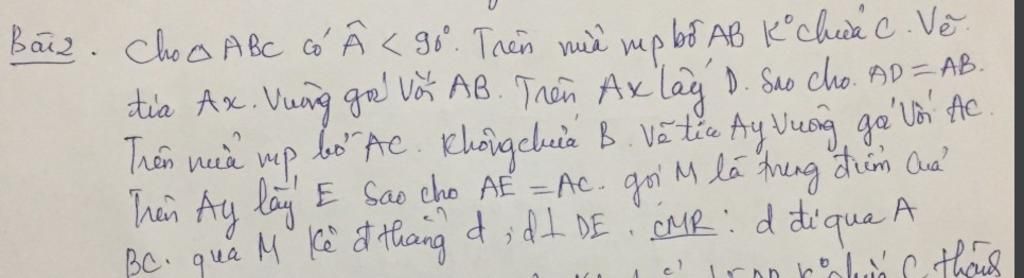 Bài 2. Cho △ ABC có Â < 90°. Trên nửa mp bờ AB K° chứa C. Vẽ
tia Ax. Vuông góc Với AB. Trên Ax lấy D. Sao cho. AD = AB.
Trên nửa mp bờ AC. Không chứa B. Vẽ tia Ay Vuông góc Với AC.
Trên Ay lấy E Sao cho AE = AC. gọi M là trung điểm Của
BC. qua M Kẻ đ thẳng d, d ⊥ DE. CMR: d đi qua A
K° C. thẳng